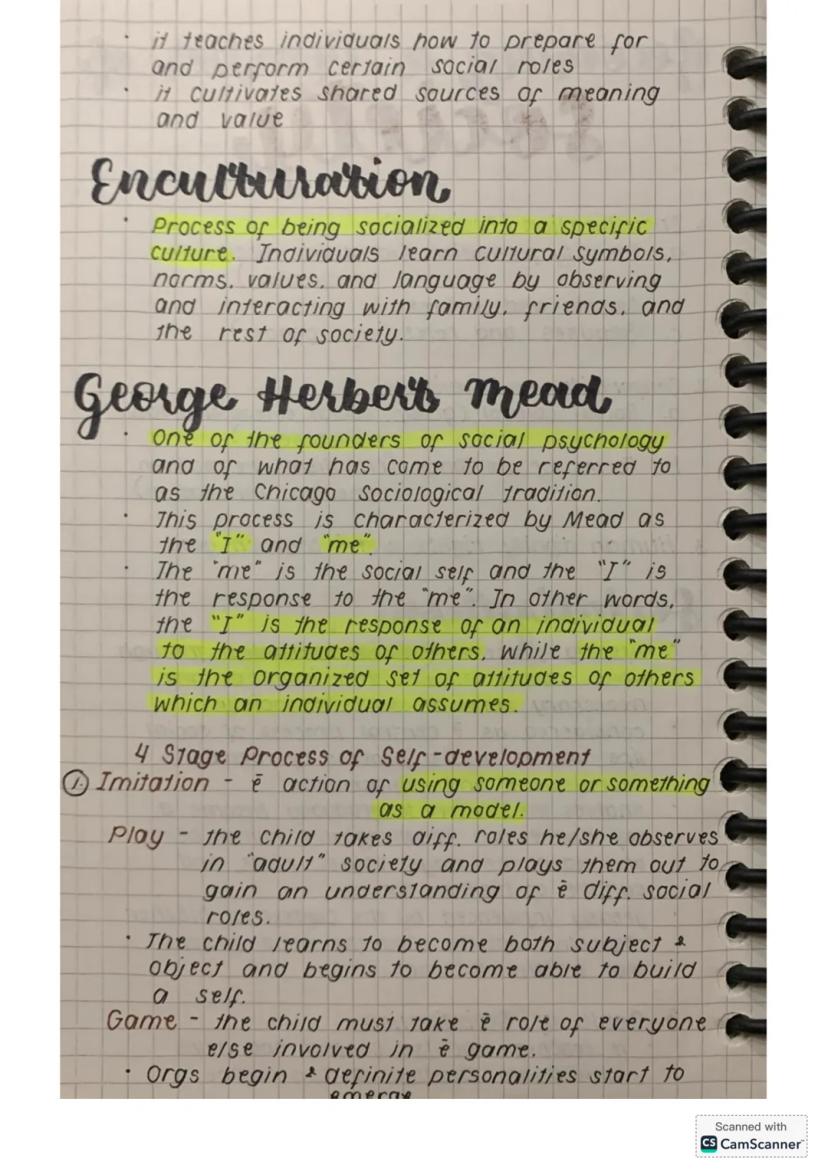 · it teaches individuals how to prepare for
and perform certain social roles
· it cultivates shared sources of meaning
and value
Enculturation
· Process of being socialized into a specific
culture. Individuals learn cultural symbols,
norms, values, and language by observing
and interacting with family, friends, and
the rest of society.
George Herbert Mead
· One of the founders of social psychology
and of what has come to be referred to
as the Chicago Sociological tradition.
· This process is characterized by Mead as
the "I" and "me".
· The "me" is the social self and the "I" is
the response to the "me". In other words,
the "I" is the response of an individual
to the attitudes of others, while the "me"
is the organized set of attitudes of others
which an individual assumes.
4 Stage Process of Self-development
① Imitation - ē action of using someone or something
as a model.
Play - the child takes diff. roles he/she observes
in "adult" society and plays them out to
gain an understanding of ē diff. social
roles.
· The child learns to become both subject &
object and begins to become able to build
a self.
Game - the child must take ē role of everyone
else involved in ē game.
· Orgs begin & definite personalities start to
emerge
Scanned with
CS CamScanner